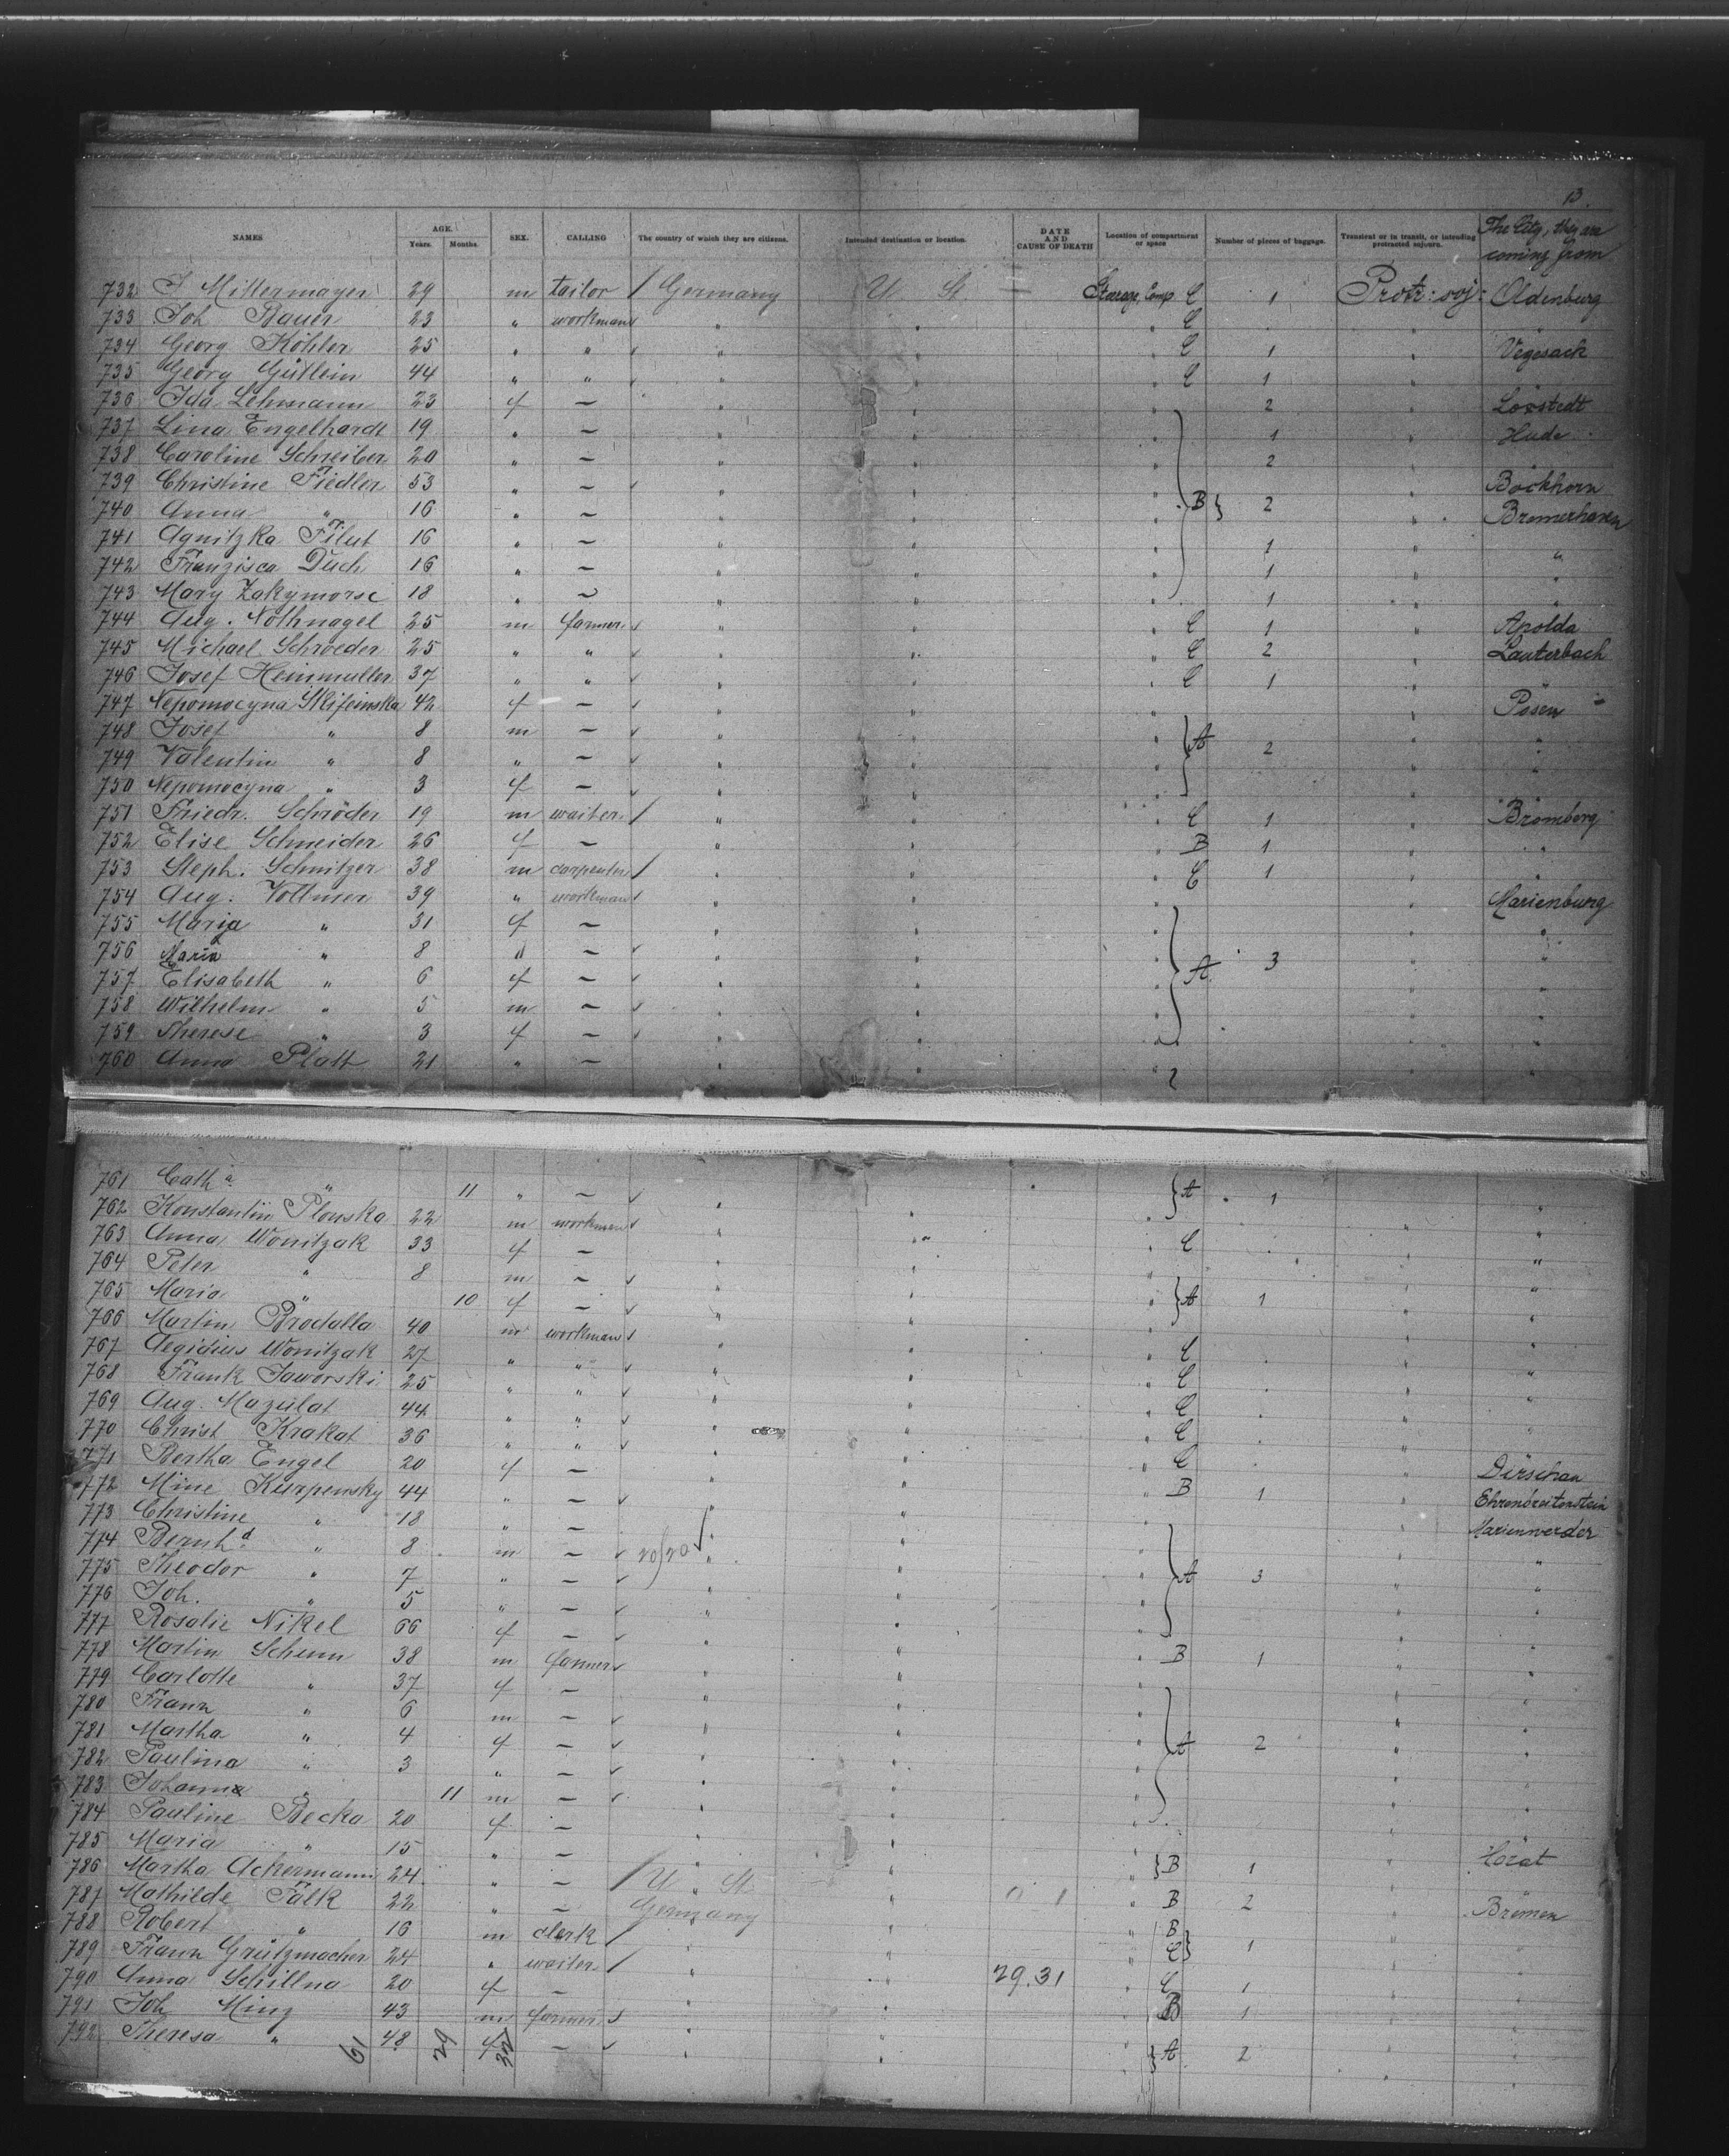 13.
NAMES AGE. Years. Months. SEX. CALLING The country of which they are citizens. Intended destination or location. DATE AND CAUSE OF DEATH Location of compartment or space Number of pieces of baggage. Transient or in transit, or intending protracted sojourn. The City, they are coming from
732 J Mittermayer 29 m tailor / Germany U St — Steerage, Comp. C 1 Protr: soj: Oldenburg
733 Joh Bauer 23 " workman " " " C . " "
734 Georg Köhler 25 " " " " " C 1 " Vegesack
735 Georg Gütlein 44 " " " " " C 1 "
736 Ida Lehmann 23 f — " " " 2 " Loxstedt
737 Lina Engelhardt 19 " — " " " 1 " Hude
738 Caroline Schreiber 20 " — " " " 2 "
739 Christine Fiedler 53 " — " " " " Bockhorn
740 Anna " 16 " — " " " } B } 2 " Bremerhaven
741 Agnitzka Filut 16 " — " " " 1 " "
742 Franzisca Duch 16 " — " " " 1 " "
743 Mary Zakymorse 18 " — " " " 1 " "
744 Aug. Nothnagel 25 m farmer " " " C 1 " Apolda
745 Michael Schroeder 25 " " " " " C 2 " Lauterbach
746 Josef Heinmuller 37 " " " " " C 1 " "
747 Nepomocyna 42 f — " " " " Posen
748 Josef " 8 m — " " " } A 2 " "
749 Valentin " 8 " — " " " " "
750 Nepomocyna " 3 f — " " " " "
751 Friedr. Schröder 19 m waiter / " " " C 1 " Bromberg
752 Elise Schneider 26 f — " " " B 1 " "
753 Steph. Schnitzer 38 m carpenter / " " " C 1 " "
754 Aug. Vollmer 39 " workman " " " " Marienburg
755 Marija " 31 f — " " " " "
756 Maria " 8 " — " " " 3 " "
757 Elisabeth " 6 f — " " " } A " "
758 Wilhelm " 5 m — " " " " "
759 Therese " 3 f — " " " " "
760 Anna Platt 21 " — " " " "
761 Cath.a " 11 " — " " " } A 1 "
762 Konstantin Plonska 22 m workman " " " "
763 Anna Wonitzak 33 f — " " " C . " "
764 Peter " 8 m — " " " " "
765 Maria " 10 f — " " " } A 1 " "
766 Martin Brodalla 40 m workman " " " " "
767 Aegidius Wonitzak 27 " " " " " C . " "
768 Frank Jaworski 25 " " " " " C . " "
769 Aug. Mazulat 44 " " " " " C . " "
770 Christ Krakat 36 " " " " " C . " "
771 Bertha Engel 20 f — " " " C . " Dirschau
772 Mine Kurpensky 44 " — " " " B 1 " Ehrenbreitenstein
773 Christine " 18 " — " " " Marienwerder
774 Bernh.d " 8 m — 20/20 " " " "
775 Theodor " 7 " — " " " } A 3 " "
776 Joh. " 5 " — " " " " "
777 Rosalie Nikel 66 f — " " " " "
778 Martin Schunn 38 m farmer " " " B 1 " "
779 Carlotte " 37 f — " " " " "
780 Franz " 6 m — " " " " "
781 Martha " 4 f — " " " } A 2 " "
782 Paulina " 3 " — " " " " "
783 Johanna " 11 m — " " " " "
784 Pauline Becka 20 f — " " " "
785 Maria " 15 " — " " } B 1 "
786 Martha Ackermann 24 " — / U. St. " " B 2 "
787 Mathilde Falk 22 " — Germany " B " Bremen
788 Robert " 16 m clerk / " " C } 1 " "
789 Franz Grützmacher 24 " waiter / " " 29.31 " C 1 " "
790 Anna Schillna 20 f — " " " B 1 " "
791 Joh Ming 43 m farmer " " " "
792 Theresa " 48 f — " " } A 2 " "
61 29 32